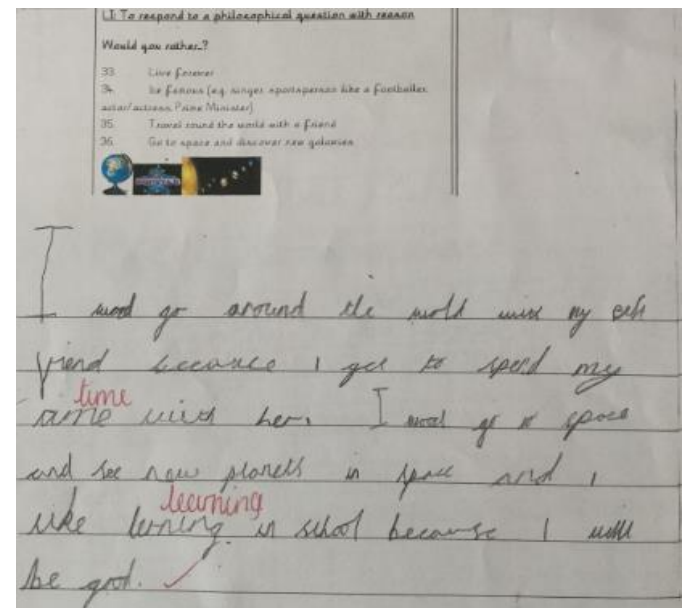 LI: To respond to a philosophical question with reason
Would you rather..?
33. Live forever
34. Be famous (e.g. singer, sportsperson like a footballer,
actor/actress, Prime Minister)
35. Travel round the world with a friend
36. Go to space and discover new galaxies
I wood go around the world with my
friend because I get to spend my
time
with her. I wood go to space
and see new planets in space and I
learning
like lerning in school because I will
be good. ✓